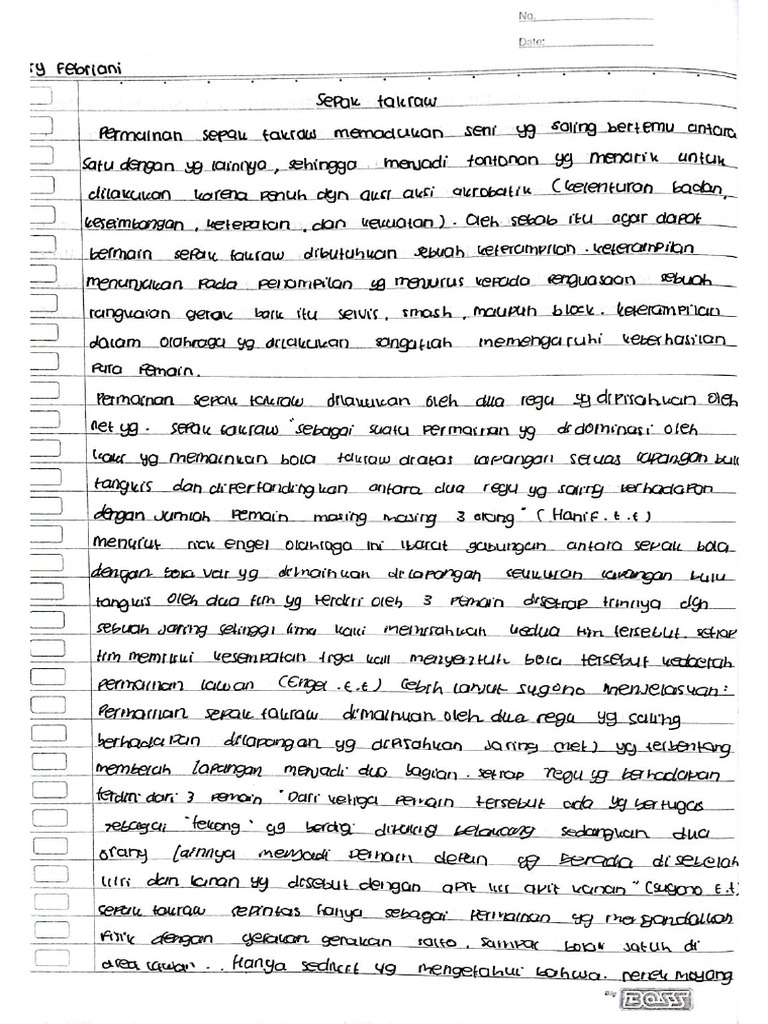 No.
Date:
ry Febriani
Sepak takraw
Permainan sepak takraw memadukan seni yg saling bertemu antara
satu dengan yg lainnya, sehingga menjadi tontonan yg menarik untuk
dilakukan karena penuh dgn aksi aksi akrobatik (kelenturan badan,
keseimbangan, ketepatan, dan kekuatan). Oleh sebab itu agar dapat
bermain sepak takraw dibutuhkan sebuah keterampilan. keterampilan
menunjukan pada penampilan yg menjurus kepada penguasaan sebuah
rangkaian gerak baik itu servis, smash, maupun block. keterampilan
dalam olahraga yg dilakukan sangatlah memengaruhi keberhasilan
para pemain.
Permainan sepak takraw dilakukan oleh dua regu yg dipisahkan oleh
net yg. sepak takraw "sebagai suatu permainan yg di dominasi oleh
kaki yg memainkan bola takraw diatas lapangan seluas lapangan bulu
tangkis dan dipertandingkan antara dua regu yg saling berhadapan
dengan jumlah pemain masing masing 3 orang" (Hanif. t.t)
menurut rick engel olahraga ini ibarat gabungan antara sepak bola
dengan bola voli yg dimainkan di lapangan seukuran lapangan bulu
tangkis oleh dua tim yg terdiri oleh 3 pemain disetiap timnya dgn
sebuah jaring setinggi lima kaki memisahkan kedua tim tersebut. setiap
tim memiliki kesempatan tiga kali menyentuh bola tersebut kedaerah
permainan lawan (Engel .t.t) lebih lanjut sugono menjelaskan:
Permainan sepak takraw dimainkan oleh dua regu yg saling
berhadapan dilapangan yg dipisahkan jaring (net) yg terbentang
membelah lapangan menjadi dua bagian. setiap regu yg berhadapan
terdiri dari 3 pemain "Dari ketiga pemain tersebut ada yg bertugas
sebagai "tekong" yg berdiri paling belakang sedangkan dua
orang lainnya menjadi pemain depan yg berada di sebelah
kiri dan kanan yg disebut dengan apit kiri apit kanan" (sugono t.t)
sepak takraw sepintas hanya sebagai permainan yg mengandalkan
fisik dengan gerakan gerakan salto, sampai bola jatuh di
area lawan.. Hanya sedikit yg mengetahui bahwa. nenek moyang
By BOSS